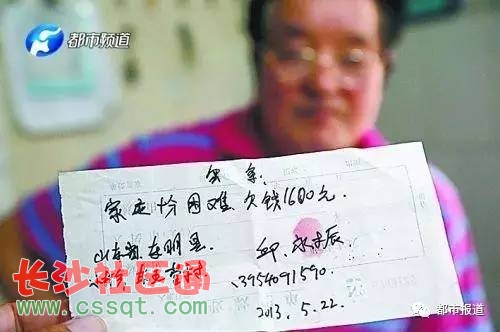 都市频道
欠条:
家庭十分困难,欠钱1600元.
山东省东明县
长沙社区通
13954091590.
www.cssqt.com
2013.5.22.
都市报道